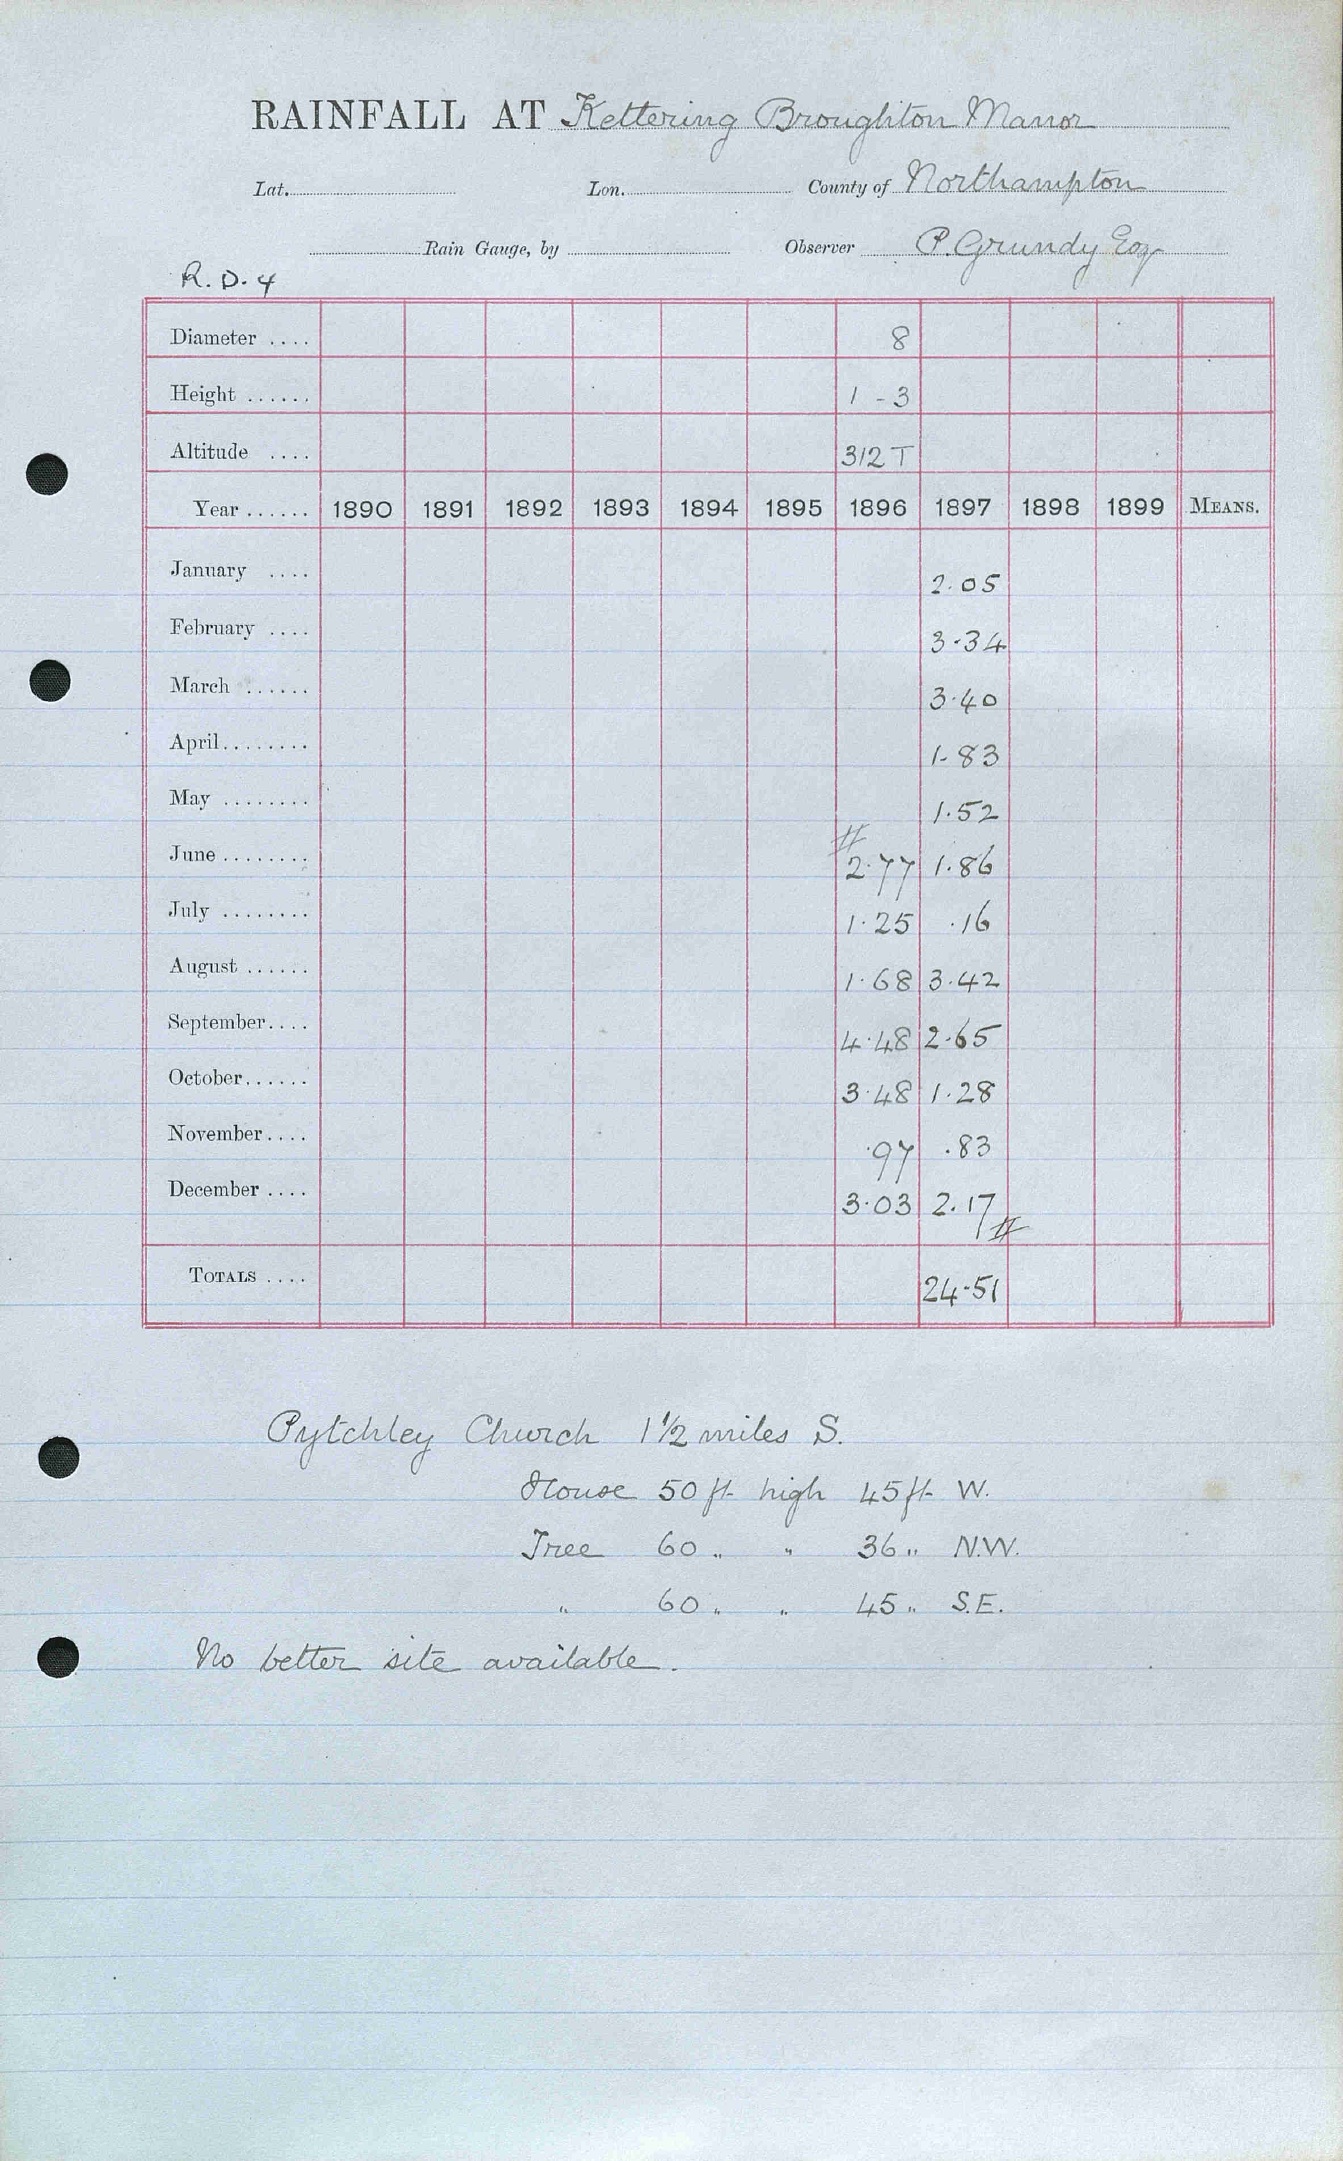 RAINFALL AT Kettering Broughton Manor
Lat. Lon. County of Northampton
Rain Gauge, by Observer P. Grundy Esq
R.D.4
Diameter .... 8
Height ...... 1 - 3
Altitude .... 312 T
Year ...... 1890 1891 1892 1893 1894 1895 1896 1897 1898 1899 MEANS.
January .... 2.05
February .... 3.34
March ...... 3.40
April ........ 1.83
May ........ 1.52
June ........ 2.77 1.86
July ........ 1.25 .16
August ...... 1.68 3.42
September .... 4.48 2.65
October ...... 3.48 1.28
November .... .97 .83
December .... 3.03 2.17
TOTALS .... 24.51
Pytchley Church 1½ miles S.
House 50 ft high 45 ft W.
Tree 60 " " 36 " N.W.
" 60 " " 45 " S.E.
No better site available.